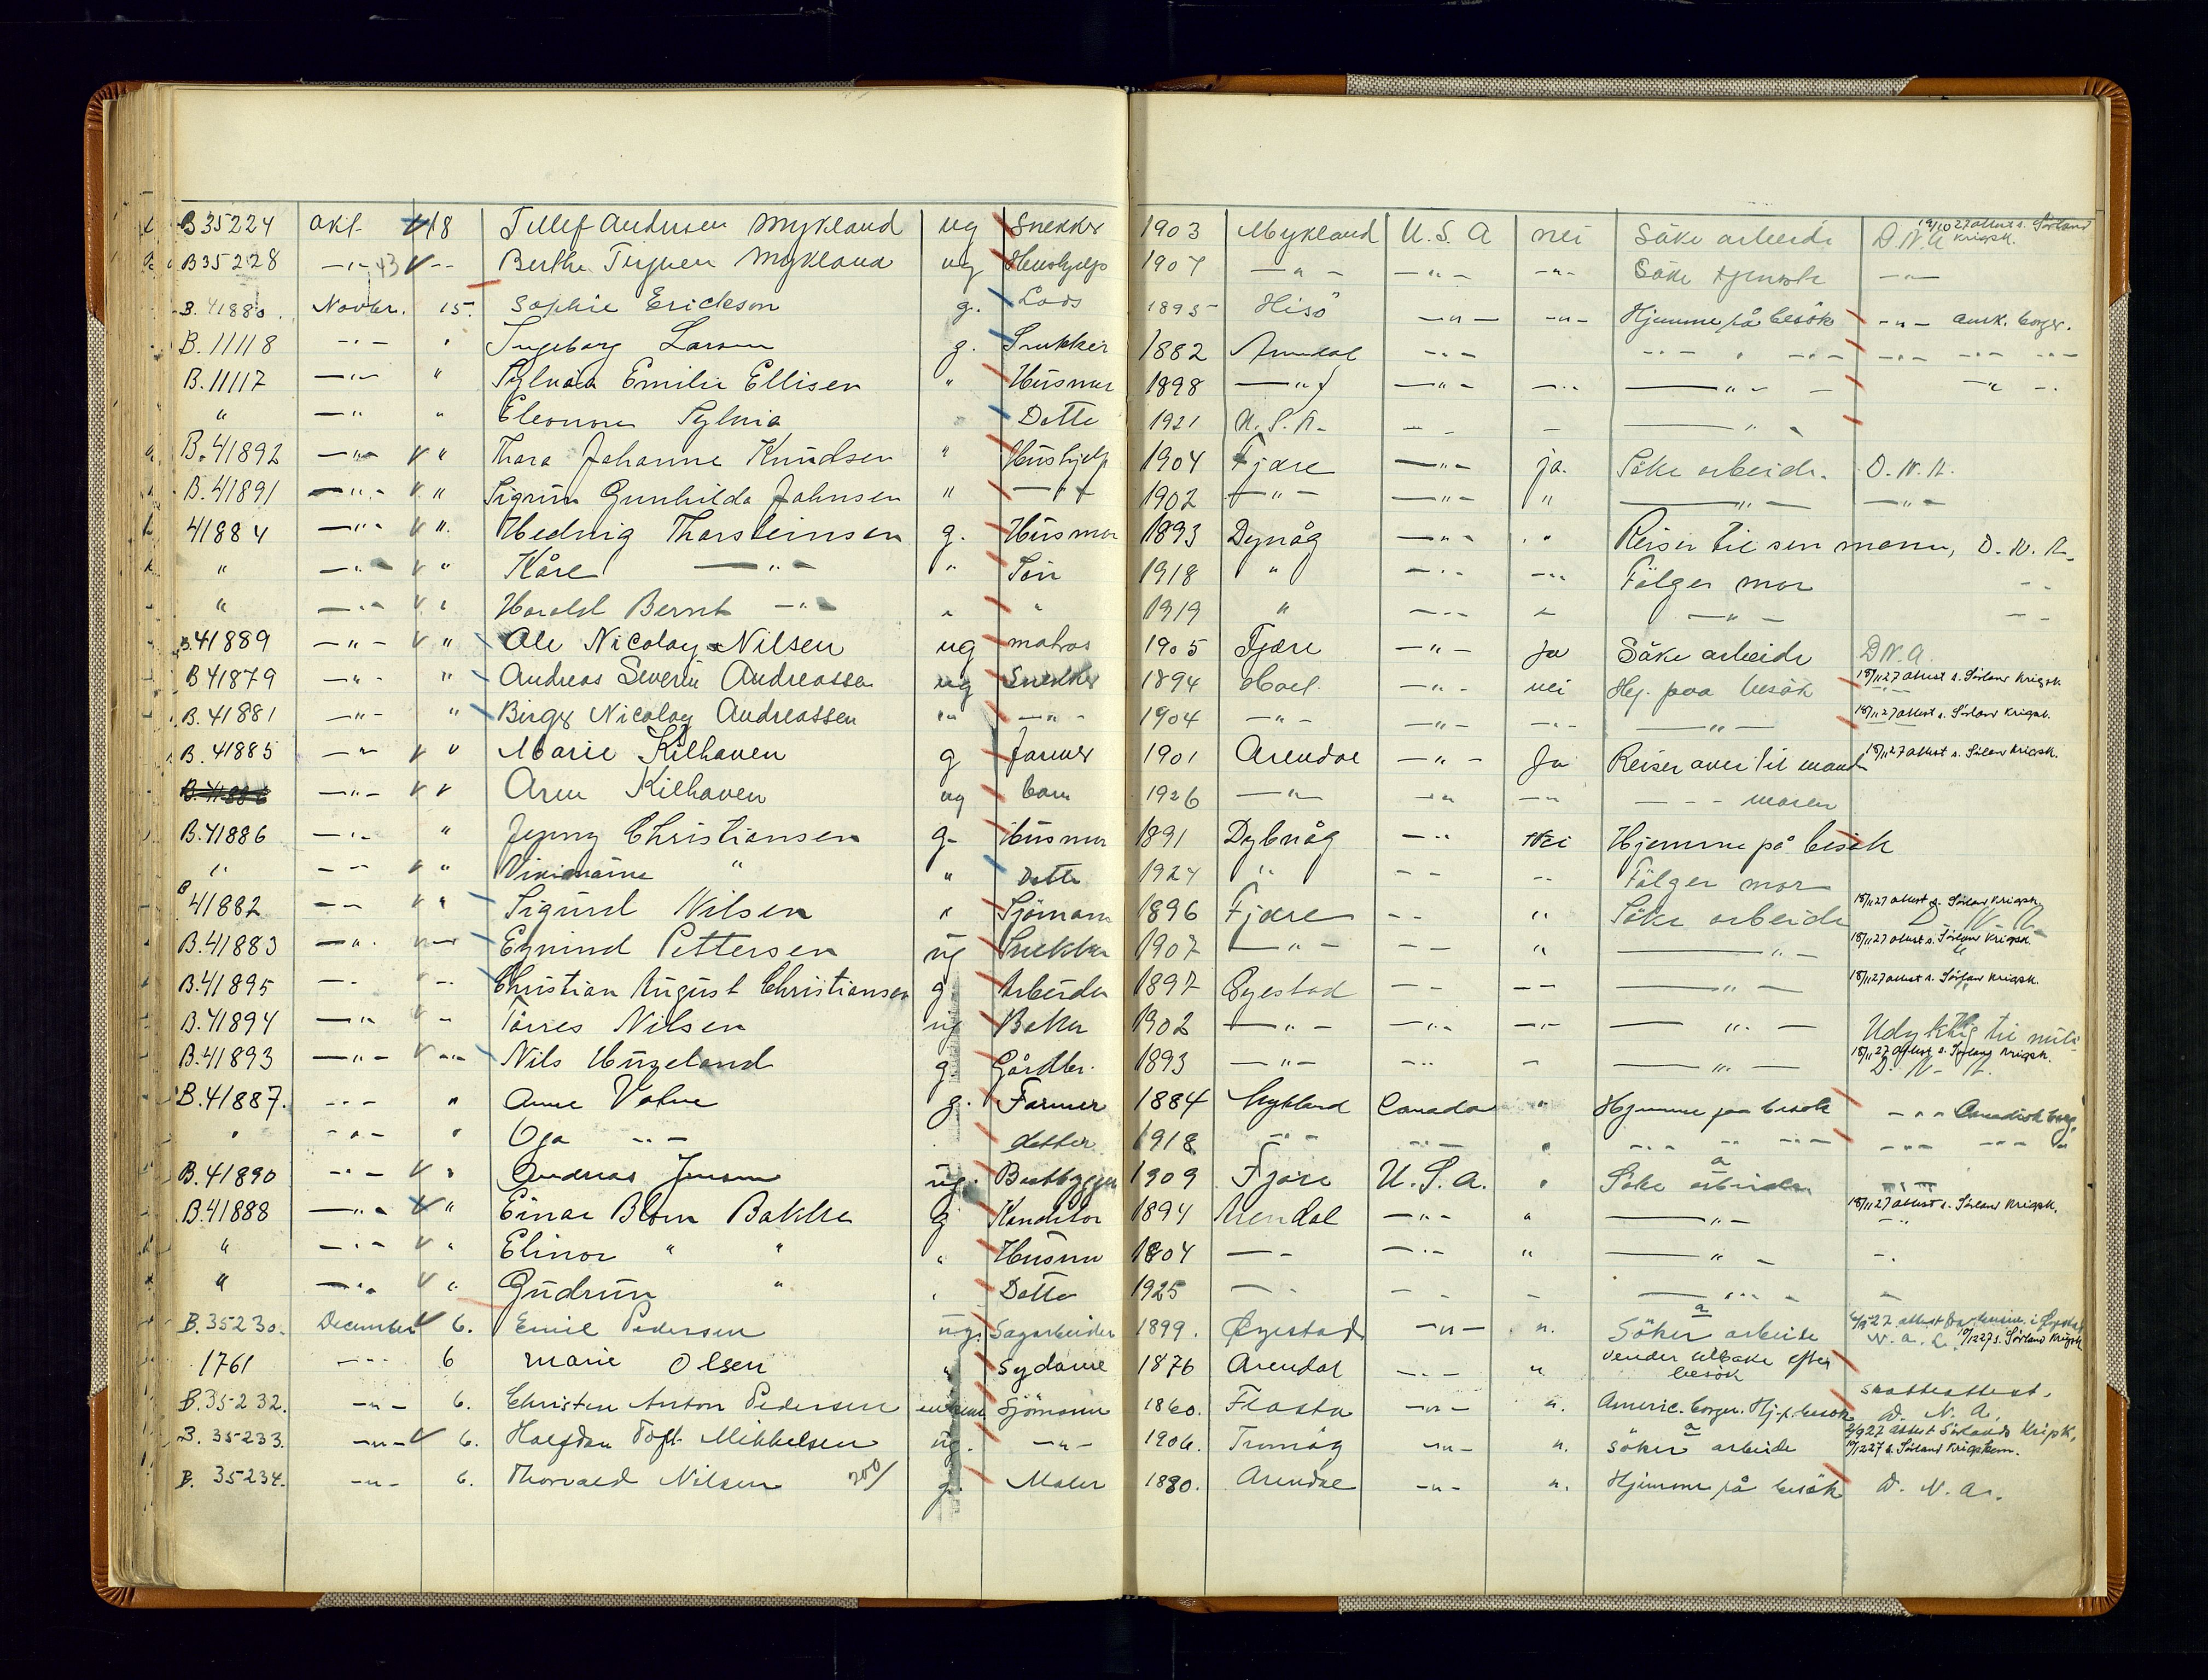 B 35224 okt. 18 Tellef Andersen Mykland ug Snekker 1903 Mykland U.S.A nei Söke arbeide D.N.A 19/10 27 attest s. Sörland Krigsk.
B 35228 -"- 43 -- Berthe Mykland ug Hushjelp 1907 -"- -"- -"- Söke tjeneste -"-
B. 41880. Novbr. 15. Sophie Erickson g. Lods 1895 Hisö -"- -"- Hjemme på besök -"- amk. borger.
B. 11118 -"- " Ingeborg Larsen g. Snekker 1882 Arendal -"- -"- -"- -"- -"- -"-
B. 11117 -"- " Sylvia Emilie Ellisen " Husmor 1898 -"- -"- -"- -"- -"-
" -"- " Eleonora Sylvia Datter 1921 U.S.A. - - - -"-
B. 41892 -"- " Thora Johanne Knudsen " Hushjelp 1904 Fjære -"- ja. Söke arbeide. D.N.A.
B. 41891 -"- " Sigrun Gunhilda Johnsen " -"- 1902 -"- -"- " -"- -"-
41884 -"- " Hedvig Thorsteinsen g. Husmor 1893 Dypvåg -"- " Reiser til sin mann, D.N.A.
" -"- " Kåre -"- " Sön 1918 " -"- -"- Fölger mor
" -"- " Harald Bernt -"- " " 1919 " -"- " -"-
B. 41889 -"- " Ole Nicolay Nilsen ug matros 1905 Fjære -"- Ja Söke arbeide D.N.A
B 41879 -"- " Andreas Severin Andreassen ug Snekker 1894 Holt -"- nei Hj. paa besök 18/11 27 attest s. Sörland Krigsk.
B. 41881 -"- " Birger Nicolay Andreassen -"- -"- 1904 -"- -"- -"- -"- 18/11 27 attest s. Sörland Krigsk.
B. 41885 -"- " Marie Kilhaven g farmer 1901 Arendal -"- Ja Reiser over til mand 18/11 27 attest s. Sörland Krigsk.
-"- " Arne Kilhaven ug barn 1926 -"- -"- -"- - - - moren
B. 41886 -"- " Jenny Christiansen g- Husmor 1891 Dybvåg -"- Nei Hjemme på besök
" -"- " " " Datter 1924 " -- -- Fölger mor
B 41882 -- " Sigurd Nilsen " Sjömann 1896 Fjære -- " Söke arbeide 18/11 27 attest s. Sörland Krigsk. D.N.A.
B. 41883 -"- -"- Eyvind Pettersen ug Snekker 1907 -"- -- " -"- 18/11 27 attest s. Sörland Krigsk.
B. 41895 -- -- Christian August Christiansen g. Arbeider 1897 Öyestad -- -- -"- 18/11 27 attest s. Sörland Krigsk.
B. 41894 -"- - Torres Nilsen ug Baker 1902 -"- -"- -"- -"- Udyktig til mili
B. 41893 -"- -"- Nils Hugeland g. Gårdbr. 1893 -"- -"- - -"- 18/11 27 attest s. Sörland Krigsk. D.N.A.
B. 41887. -"- " Anne Valne g. Farmer 1884 Mykland Canada " Hjemme paa besök -"- Canadisk borg.
" -"- " Oga -"- datter 1918 -"- -"- " -"- -"- -"- -"- -"- "
B. 41890 -"- " Andreas Jensen ug. Baatbygger 1909 Fjære U.S.A. " Söke arbeide -"-
B. 41888 -"- " Einar Blom Bakke g Konditor 1894 Arendal -"- " -"- 18/11 27 attest s. Sörland Krigsk.
" -"- " Elinor " " " Husmor 1804 -- -"- " -"- -"
" -"- " Gudrun " " Datter 1925 - - - - -"- -
B. 35230. December 6. Emil Pedersen ug. Sagarbeider 1899. Øyestad -"- ". Söker arbeide D.N.A. 19/12 27 s. Sörland Krigsk
1761 -"- 6 Marie Olsen " Sydame 1876 Arendal -"- " Vender tilbake efter besök
B. 35232. -"- 6. Christen Anton Pedersen enkem Sjömann 1860. Flosta -"- ". Americ. borger. Hj. p. besök skatteattest. D.N.A.
B. 35233. -"- 6. Halfdan Toft Mikkelsen ug. -"- 1906. Tromöy -"- ". söker arbeide 2/9 27 attest Sörlands Kripk. 19/12 27 s. Sörland Krigskom.
B. 35234. -"- 6. Thorvald Nilsen 200/ g. Maler 1880. Arendal -"- ". Hjemme på besök D.N.A.